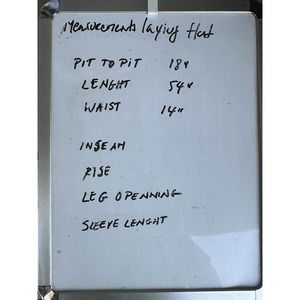 Measurements laying flat
PIT TO PIT 18"
LENGHT 54"
WAIST 14"
INSEAM
RISE
LEG OPENNING
SLEEVE LENGHT